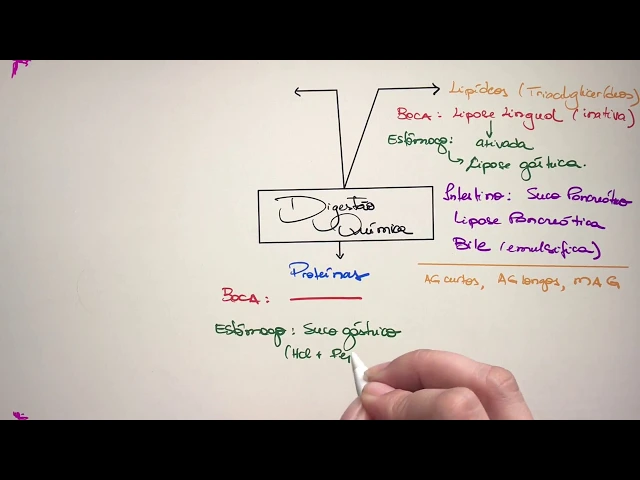 Lipídeos (Triacilglicerídeos)
BOCA: Lipase Lingual (inativa)
Estômago: ativada
Lipase gástrica.
Digestão
Química
Intestino: Suco Pancreático
Lipase Pancreática
Bile (emulsifica)
AG curtos, AG longos, MAG
Proteínas
BOCA:
Estômago: Suco gástrico
(Hcl + Pep